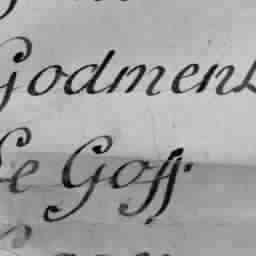 Godment
Le Goff.